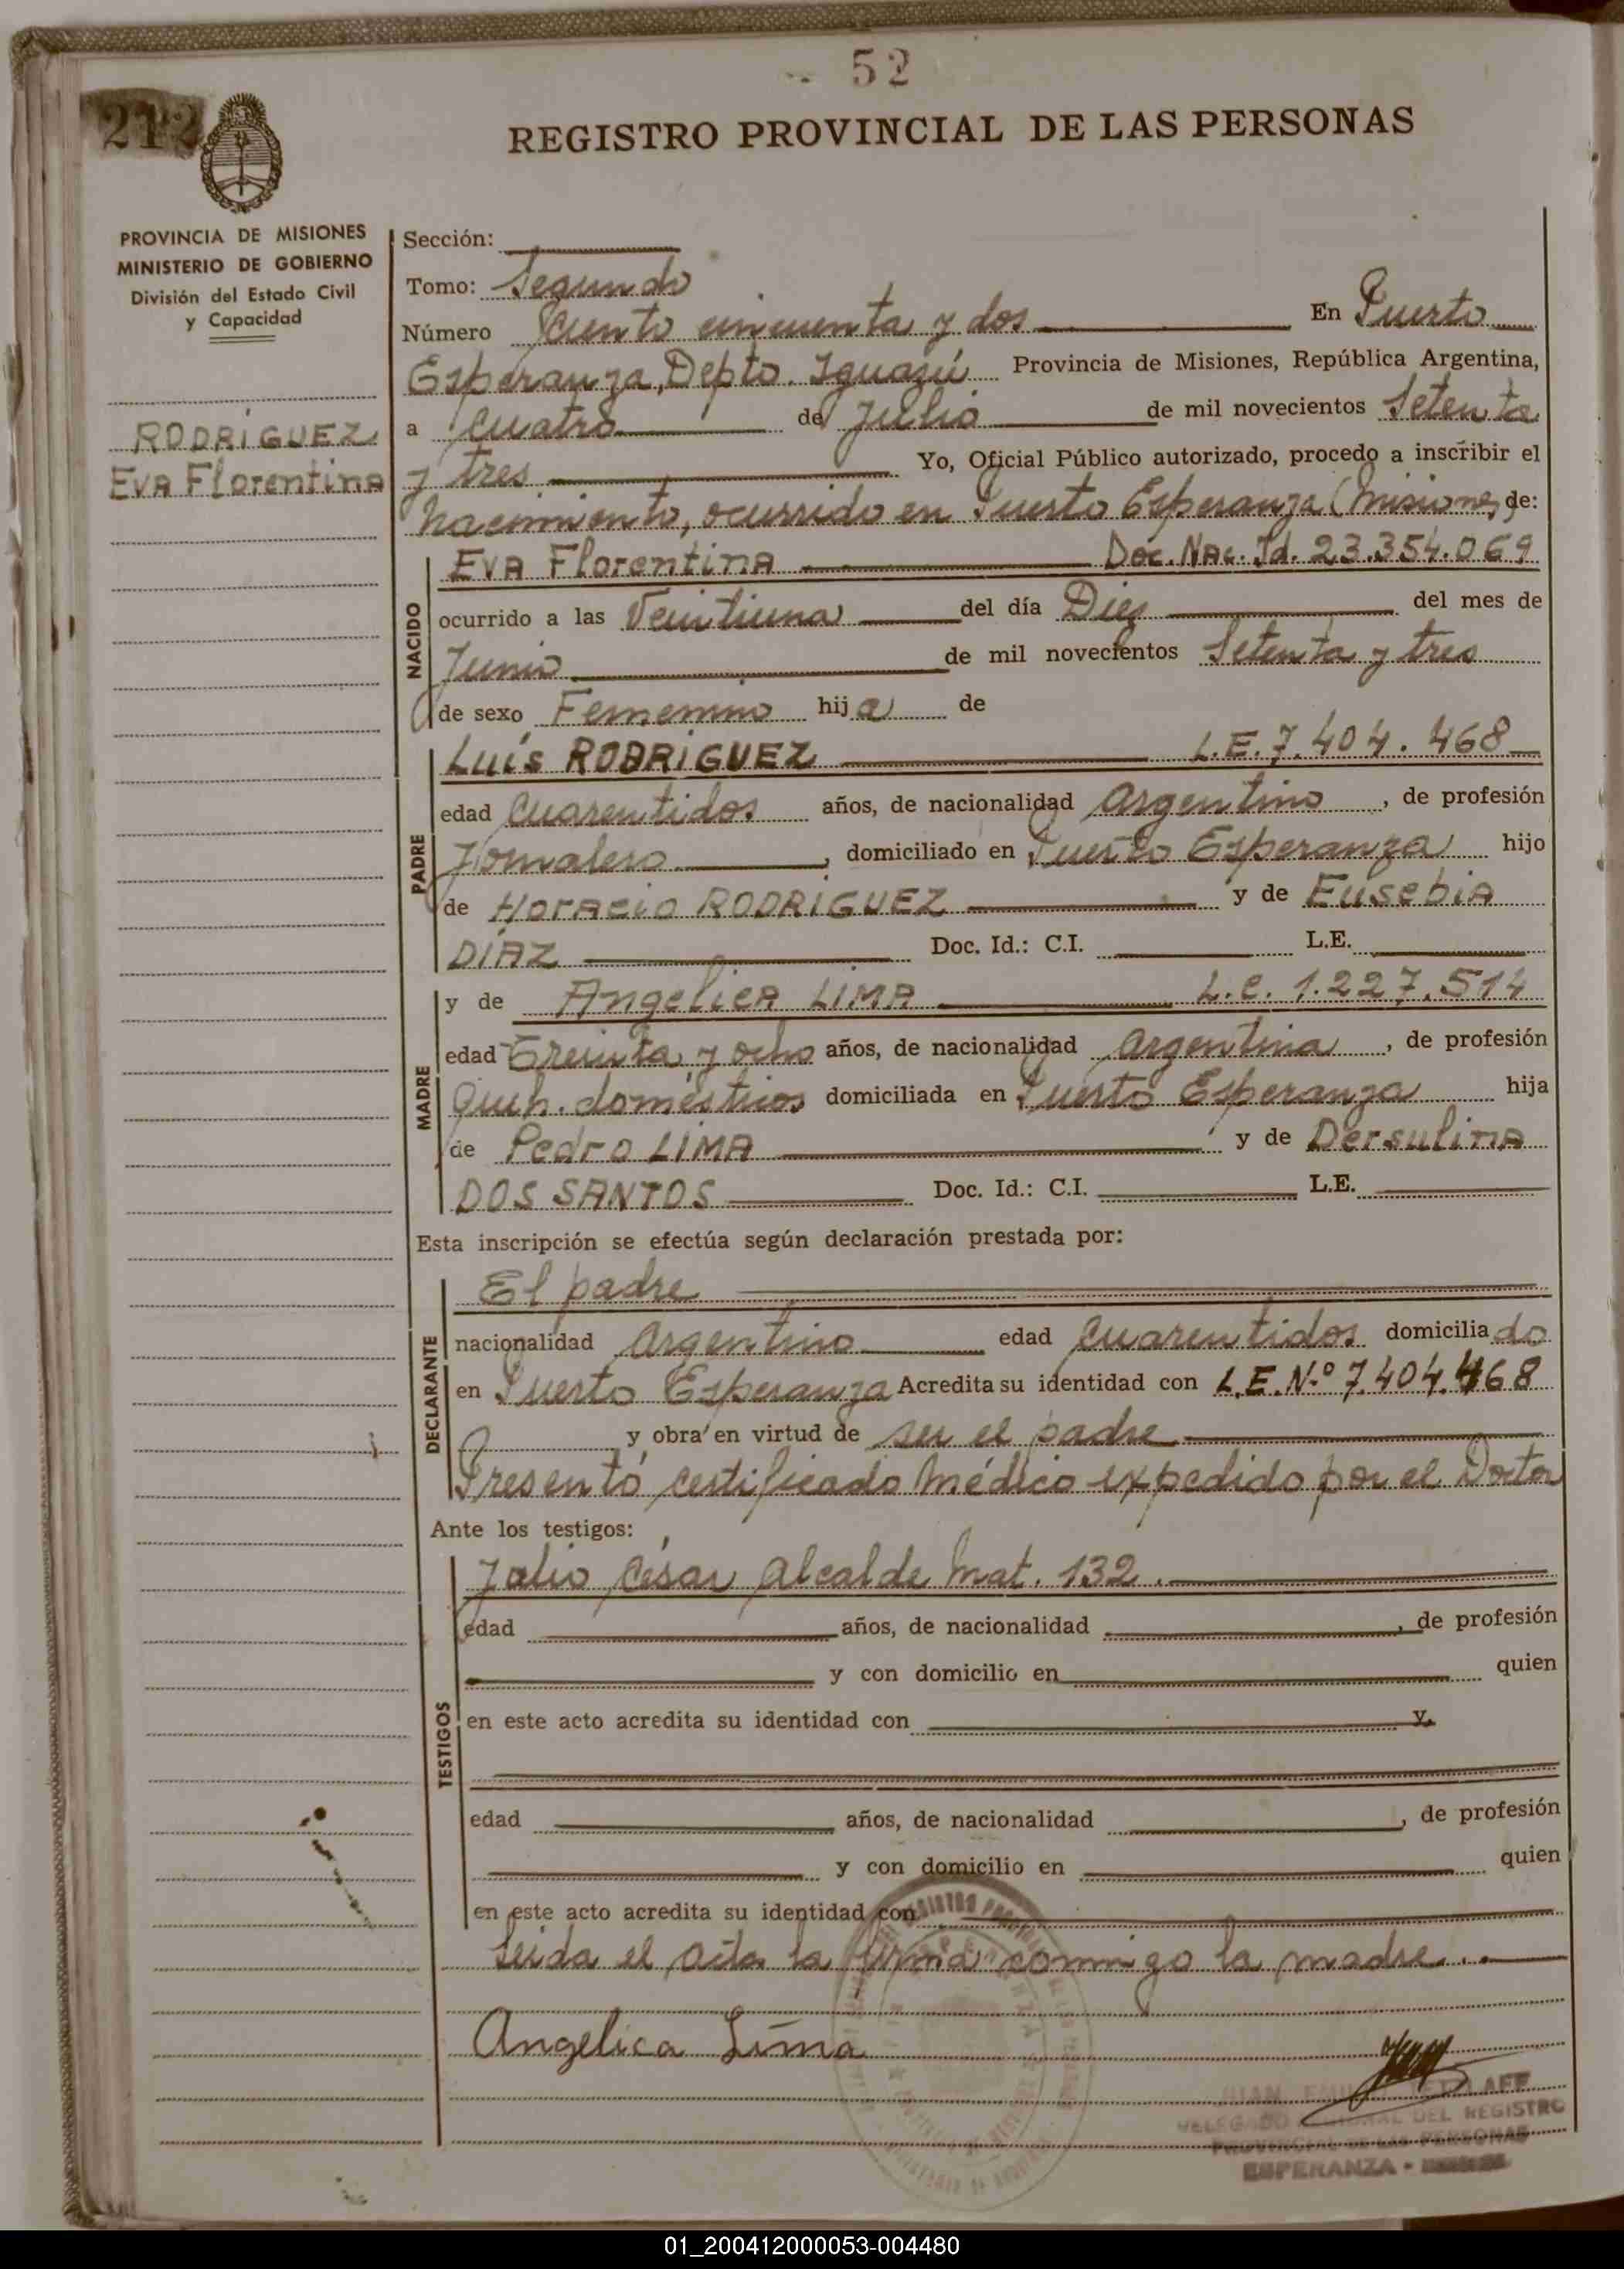 52
212
REGISTRO PROVINCIAL DE LAS PERSONAS
PROVINCIA DE MISIONES
MINISTERIO DE GOBIERNO
División del Estado Civil
y Capacidad
RODRÍGUEZ
Eva Florentina
Sección:
Tomo: Segundo
Número Ciento cincuenta y dos En Puerto
Esperanza, Depto. Iguazú Provincia de Misiones, República Argentina,
a cuatro de Julio de mil novecientos Setenta
y tres Yo, Oficial Público autorizado, procedo a inscribir el
nacimiento, ocurrido en Puerto Esperanza (Misiones) de:
NACIDO
Eva Florentina Doc. Nac. Id. 23.354.069
ocurrido a las Veintiuna del día Diez del mes de
Junio de mil novecientos Setenta y tres
de sexo Femenino hija de
PADRE
Luis RODRÍGUEZ L.E. 7.404.468
edad cuarentidos años, de nacionalidad argentino, de profesión
Jornalero, domiciliado en Puerto Esperanza hijo
de Horacio RODRIGUEZ y de Eusebia
DÍAZ Doc. Id.: C.I. L.E.
MADRE
y de Angelica LIMA L.C. 1.227.514
edad Treinta y ocho años, de nacionalidad argentina, de profesión
Queh. domésticos domiciliada en Puerto Esperanza hija
de Pedro LIMA y de Dersulina
DOS SANTOS Doc. Id.: C.I. L.E.
Esta inscripción se efectúa según declaración prestada por:
DECLARANTE
El padre
nacionalidad argentino edad cuarentidos domiciliado
en Puerto Esperanza Acredita su identidad con L.E. N.º 7.404.468
y obra en virtud de ser el padre
Presentó certificado médico expedido por el Doctor
Ante los testigos:
TESTIGOS
Julio César Alcalde Mat. 132.
edad años, de nacionalidad, de profesión
y con domicilio en quien
en este acto acredita su identidad con y
edad años, de nacionalidad, de profesión
y con domicilio en quien
en este acto acredita su identidad con
Leida el acta la firma conmigo la madre..
Angelica Lima
JUAN
DEL REGISTRO
PROVINCIAL DE LAS PERSONAS
ESPERANZA -
01_200412000053-004480